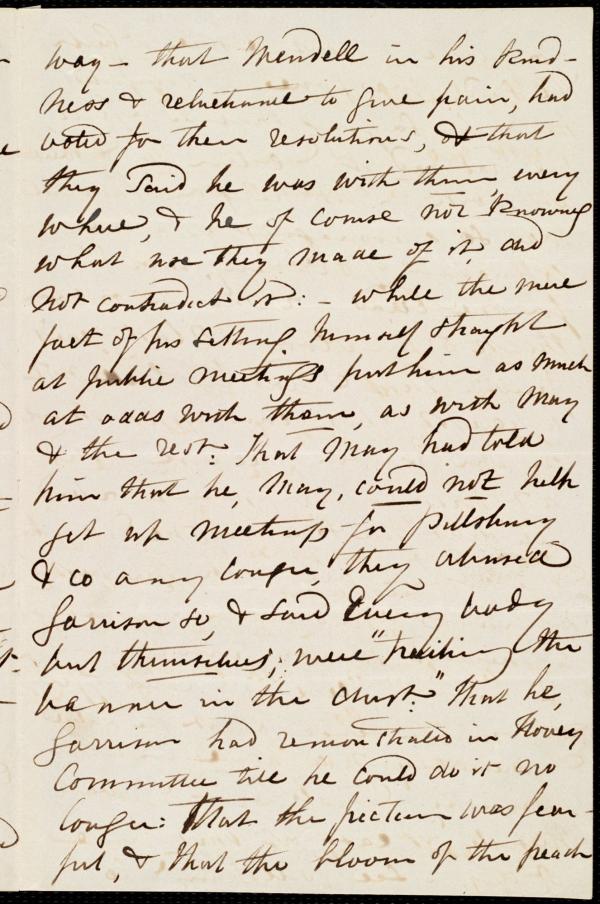 way – that Wendell in his kind-
ness & reluctance to give pain, had
voted for their resolutions, & that
they said he was with them every
where, & he of course not knowing
what use they made of it, did
not contradict it: – while the mere
fact of his setting himself straight
at public meetings put him as much
at odds with them, as with May
& the rest: That May had told
him that he, May, could not help
get up meetings for Pillsbury
& co any longer, they abused
Garrison so, & said Every body
but themselves, were "trailing the
banner in the dust:" That he,
Garrison had remonstrated in Hovey
Committee till he could do it no
longer: That the picture was fear-
ful, & that the bloom of the peach